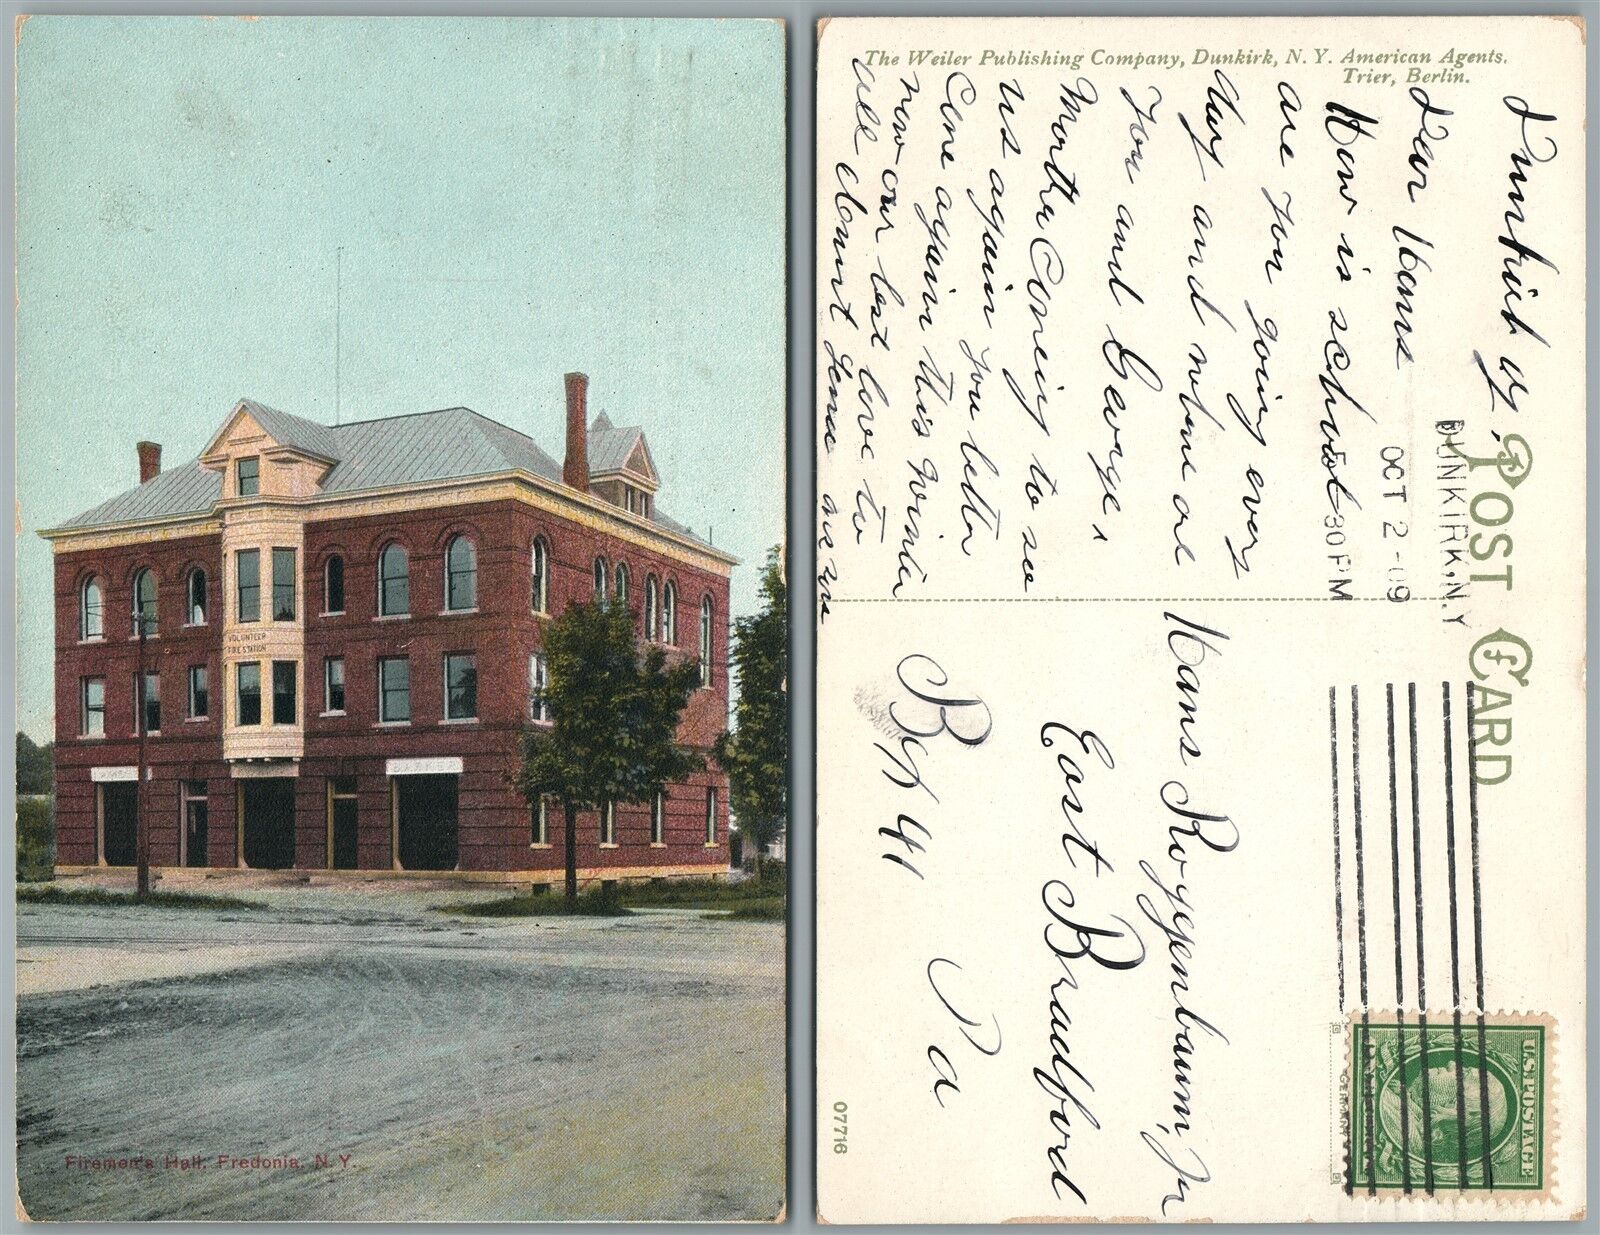 VOLUNTEER
FIRE STATION
BARKER
Firemen's Hall, Fredonia, N. Y.
The Weiler Publishing Company, Dunkirk, N. Y. American Agents.
Trier, Berlin.
POST CARD
DUNKIRK, N.Y.
OCT 2 - 09
5 30 PM
Dunkirk Ny.
Dear Hans
How is school
are you going every
day and where are
you and George
Mother Coming to see
us again you better
Come again this Winter
now our best love to
all Aunt Lena
Hans Roggenbaum, Jr
East Bradford
Bx 41 Pa
U.S. POSTAGE
GERMANY
07716